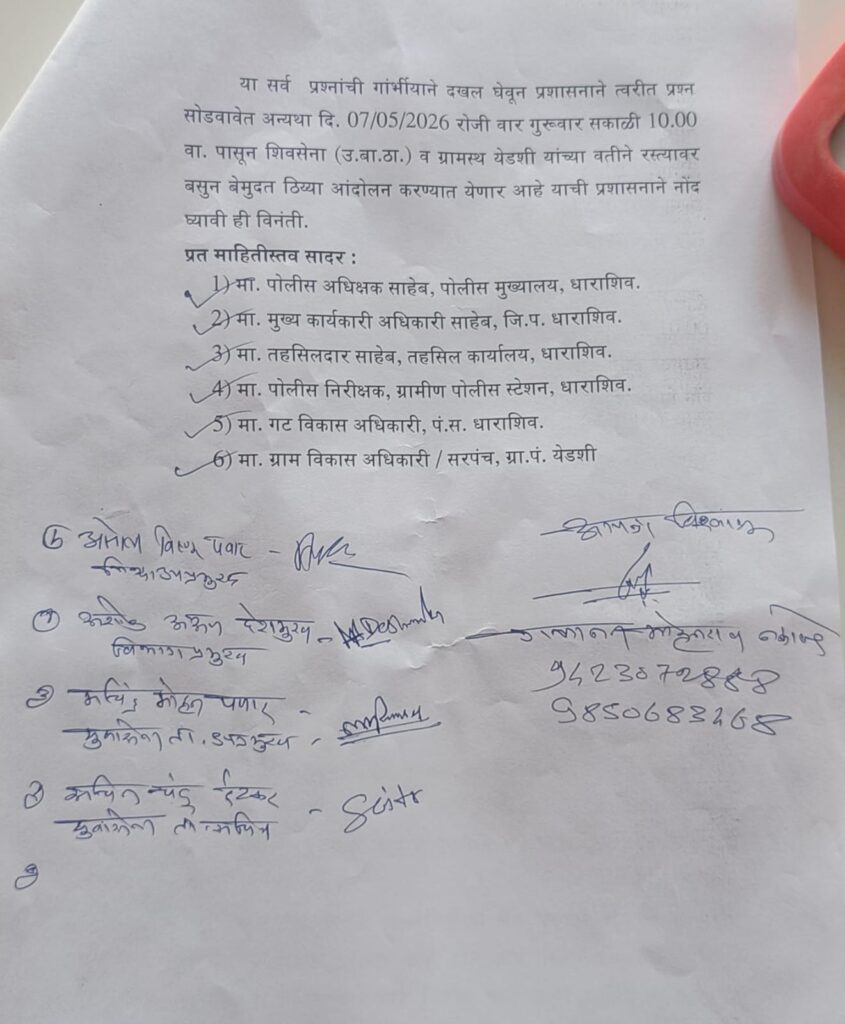 या सर्व प्रश्नांची गांर्भीयाने दखल घेवून प्रशासनाने त्वरीत प्रश्न
सोडवावेत अन्यथा दि. 07/05/2026 रोजी वार गुरूवार सकाळी 10.00
वा. पासून शिवसेना (उ.बा.ठा.) व ग्रामस्थ येडशी यांच्या वतीने रस्त्यावर
बसुन बेमुदत ठिय्या आंदोलन करण्यात येणार आहे याची प्रशासनाने नोंद
घ्यावी ही विनंती.
प्रत माहितीस्तव सादर :
1) मा. पोलीस अधिक्षक साहेब, पोलीस मुख्यालय, धाराशिव.
2) मा. मुख्य कार्यकारी अधिकारी साहेब, जि.प. धाराशिव.
3) मा. तहसिलदार साहेब, तहसिल कार्यालय, धाराशिव.
4) मा. पोलीस निरीक्षक, ग्रामीण पोलीस स्टेशन, धाराशिव.
5) मा. गट विकास अधिकारी, पं.स. धाराशिव.
6) मा. ग्राम विकास अधिकारी / सरपंच, ग्रा.पं. येडशी
आपला
अमोल विष्णू पवार -
देशमुख -
विभाग प्रमुख
9423072888
मोहन पवार -
9850683268
युवासेना ता. उपप्रमुख -
युवासेना ता. सचिव -